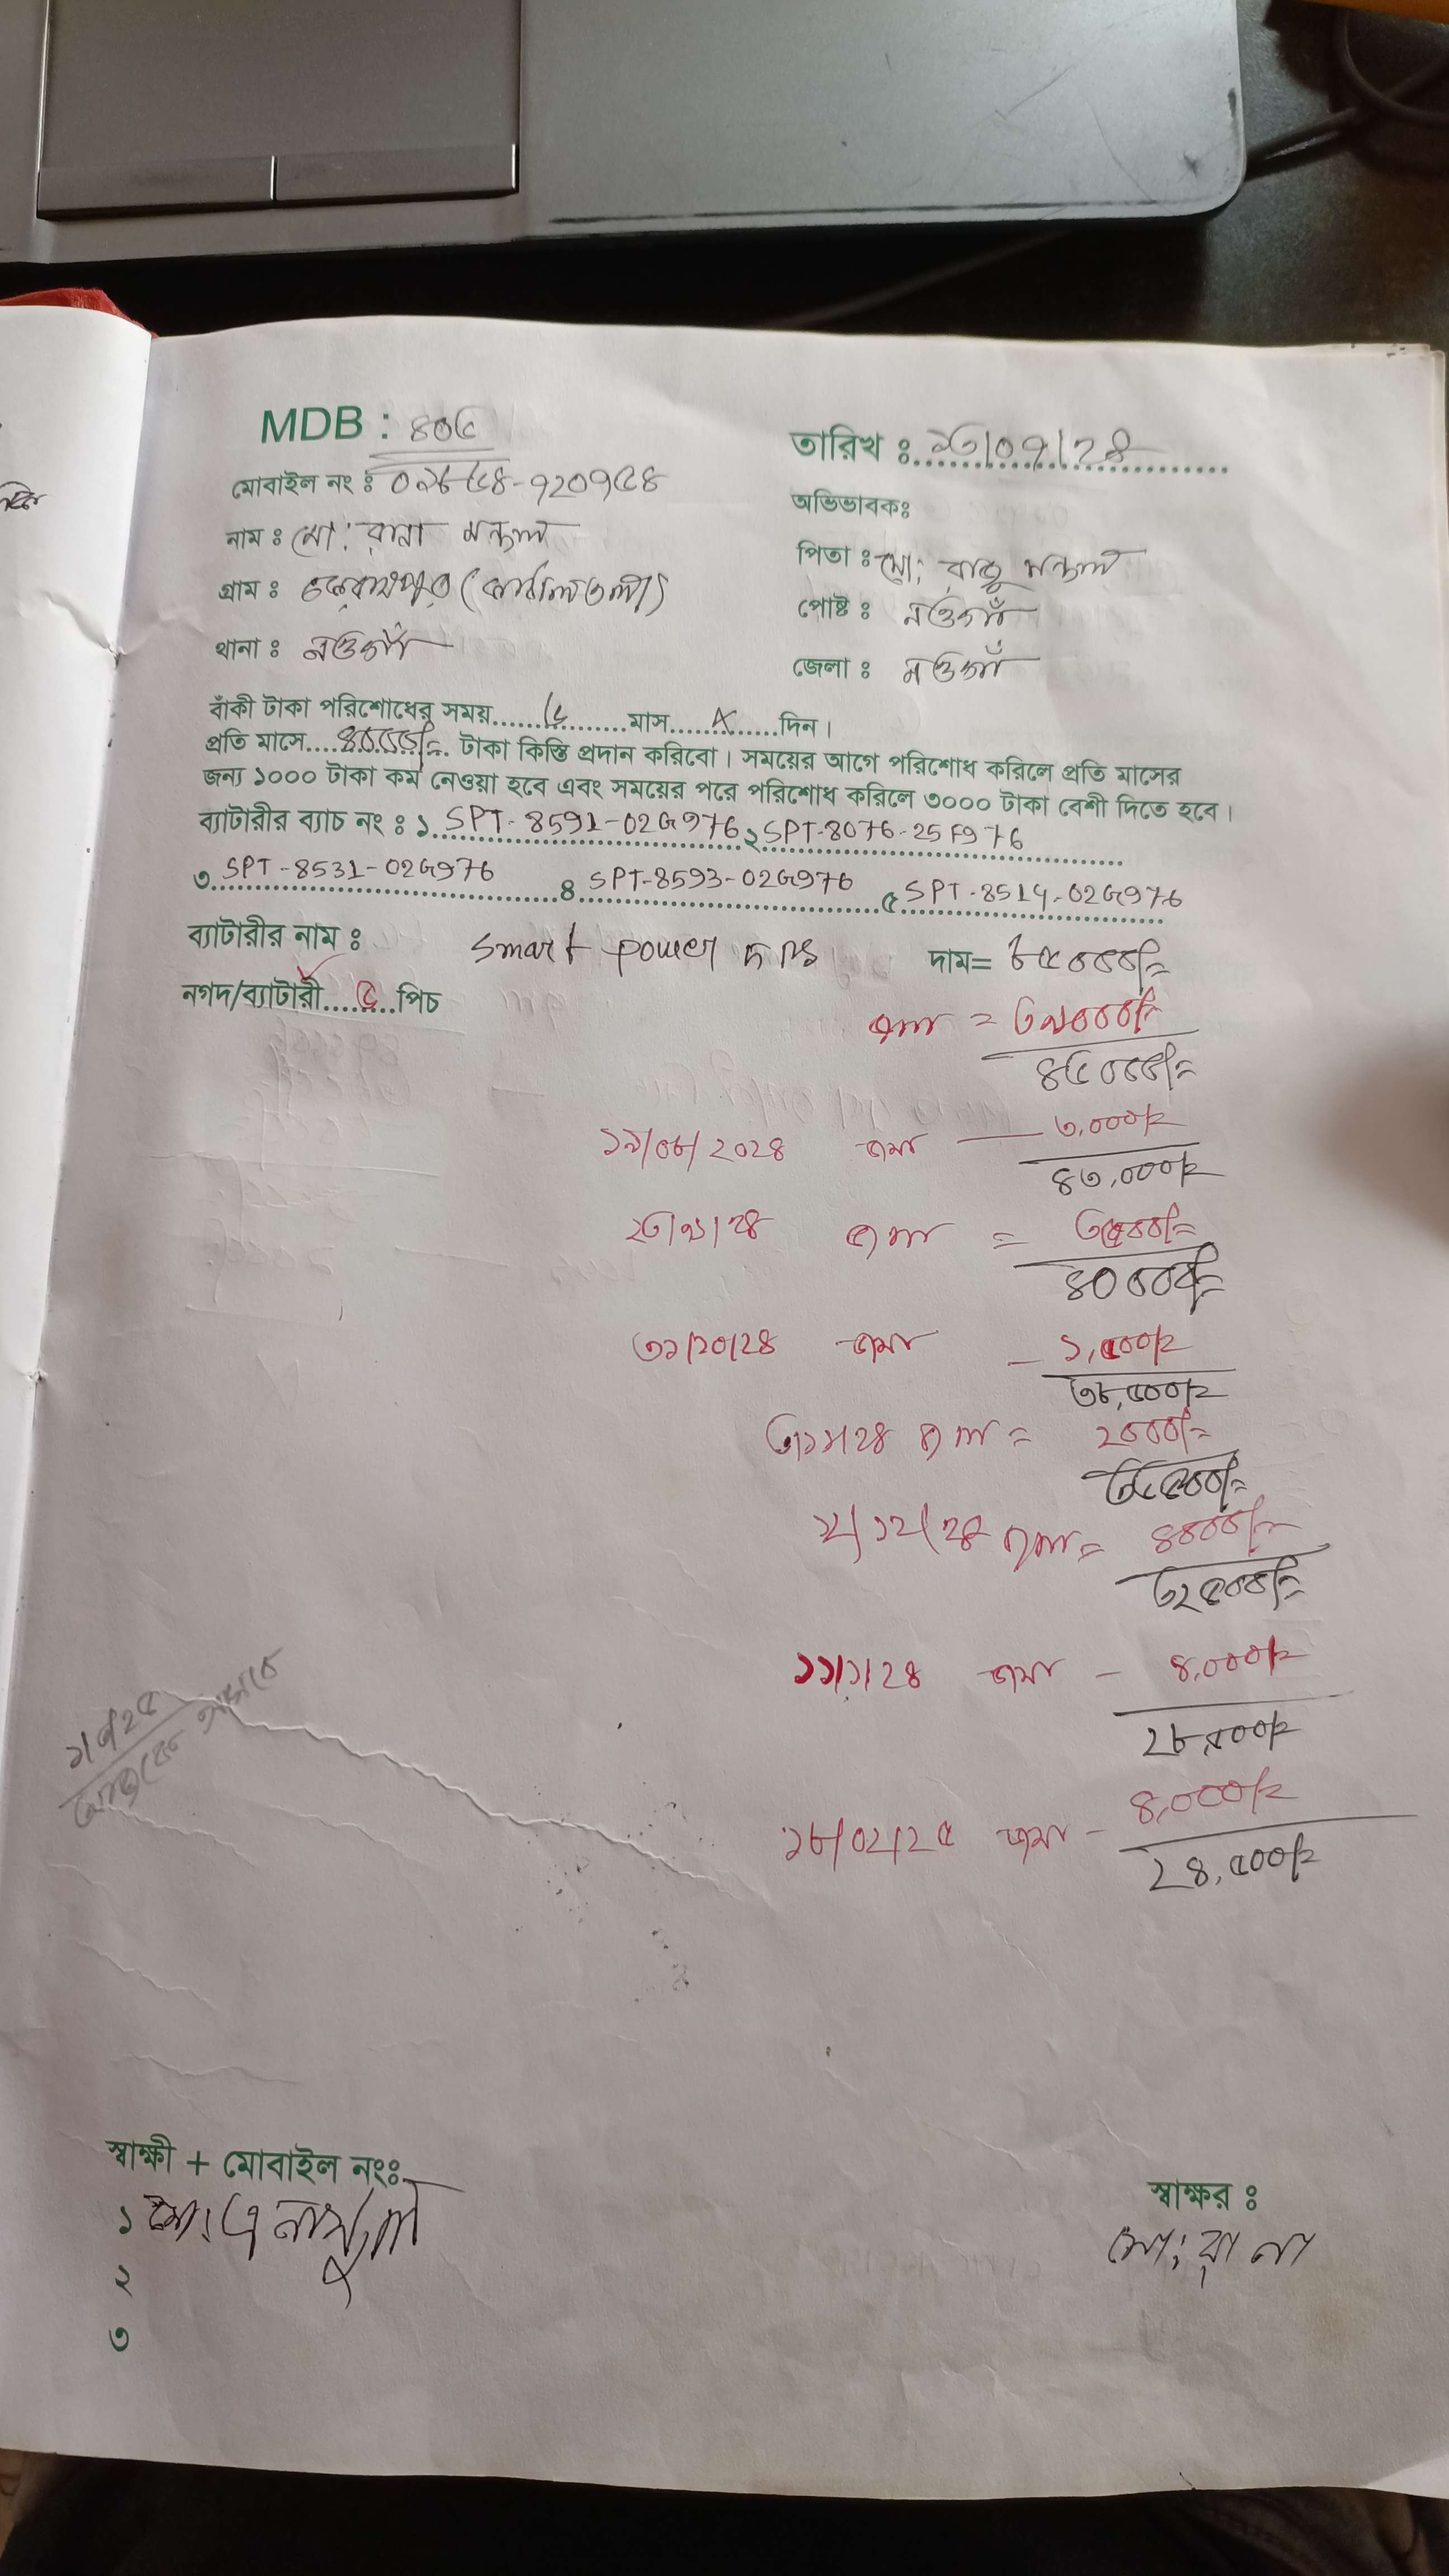 MDB : ৪০৫
তারিখ ঃ ২৩/০৭/২৪
মোবাইল নং ঃ ০১৮৫৪-৭২০৭৫৪
অভিভাবকঃ
নাম ঃ মো: রানা মন্ডল
পিতা ঃ মো: রাজু মন্ডল
গ্রাম ঃ
পোষ্ট ঃ নওগাঁ
থানা ঃ নওগাঁ
জেলা ঃ নওগাঁ
বাঁকী টাকা পরিশোধের সময়......৫........মাস.....X.....দিন।
প্রতি মাসে.... টাকা কিস্তি প্রদান করিবো। সময়ের আগে পরিশোধ করিলে প্রতি মাসের
জন্য ১০০০ টাকা কম নেওয়া হবে এবং সময়ের পরে পরিশোধ করিলে ৩০০০ টাকা বেশী দিতে হবে।
ব্যাটারীর ব্যাচ নং ঃ ১. SPT-8591-02G976 ২ SPT-8076-25F976
৩. SPT-8531-02G976 ৪ SPT-8593-02G976 ৫ SPT-8514-02G976
ব্যাটারীর নাম ঃ Smart power দাম= ৮৫০০০/=
নগদ/ব্যাটারী....৫...পিচ
জমা = ৩৯০০০/=
৪৫০০০/=
১৯/০৮/২০২৪ জমা — ৩,০০০/=
৪৩,০০০/=
জমা = ৩৫০০/=
৪০০০০/=
৩১/১০/২৪ জমা - ১,৫০০/=
৩৮,৫০০/=
জমা = ২০০০/=
জমা = ৪০০০/=
৩২৫০০/=
১১/১/২৪ জমা - ৪,০০০/=
২৮,৫০০/=
১৮/০২/২৫ জমা - ৪,০০০/=
২৪,৫০০/=
স্বাক্ষী + মোবাইল নংঃ
স্বাক্ষর ঃ
১ মো: এনামুল
মো: রানা
২
৩